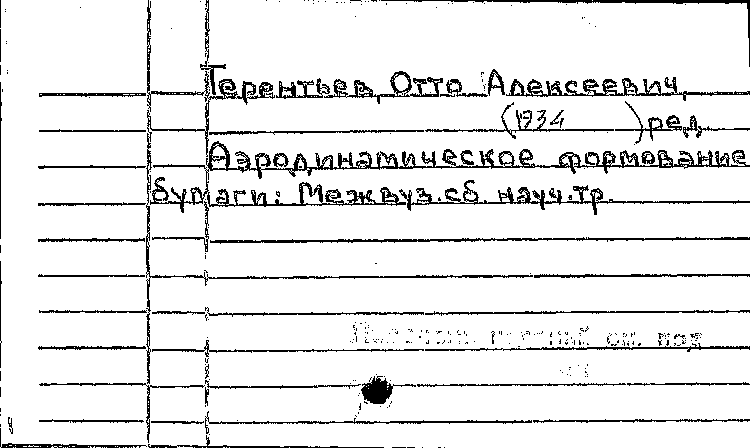 Терентьев, Отто Алексеевич,
(1934 ) ред.
Аэродинамическое формование
бумаги: Межвуз.сб. науч.тр.
см. под